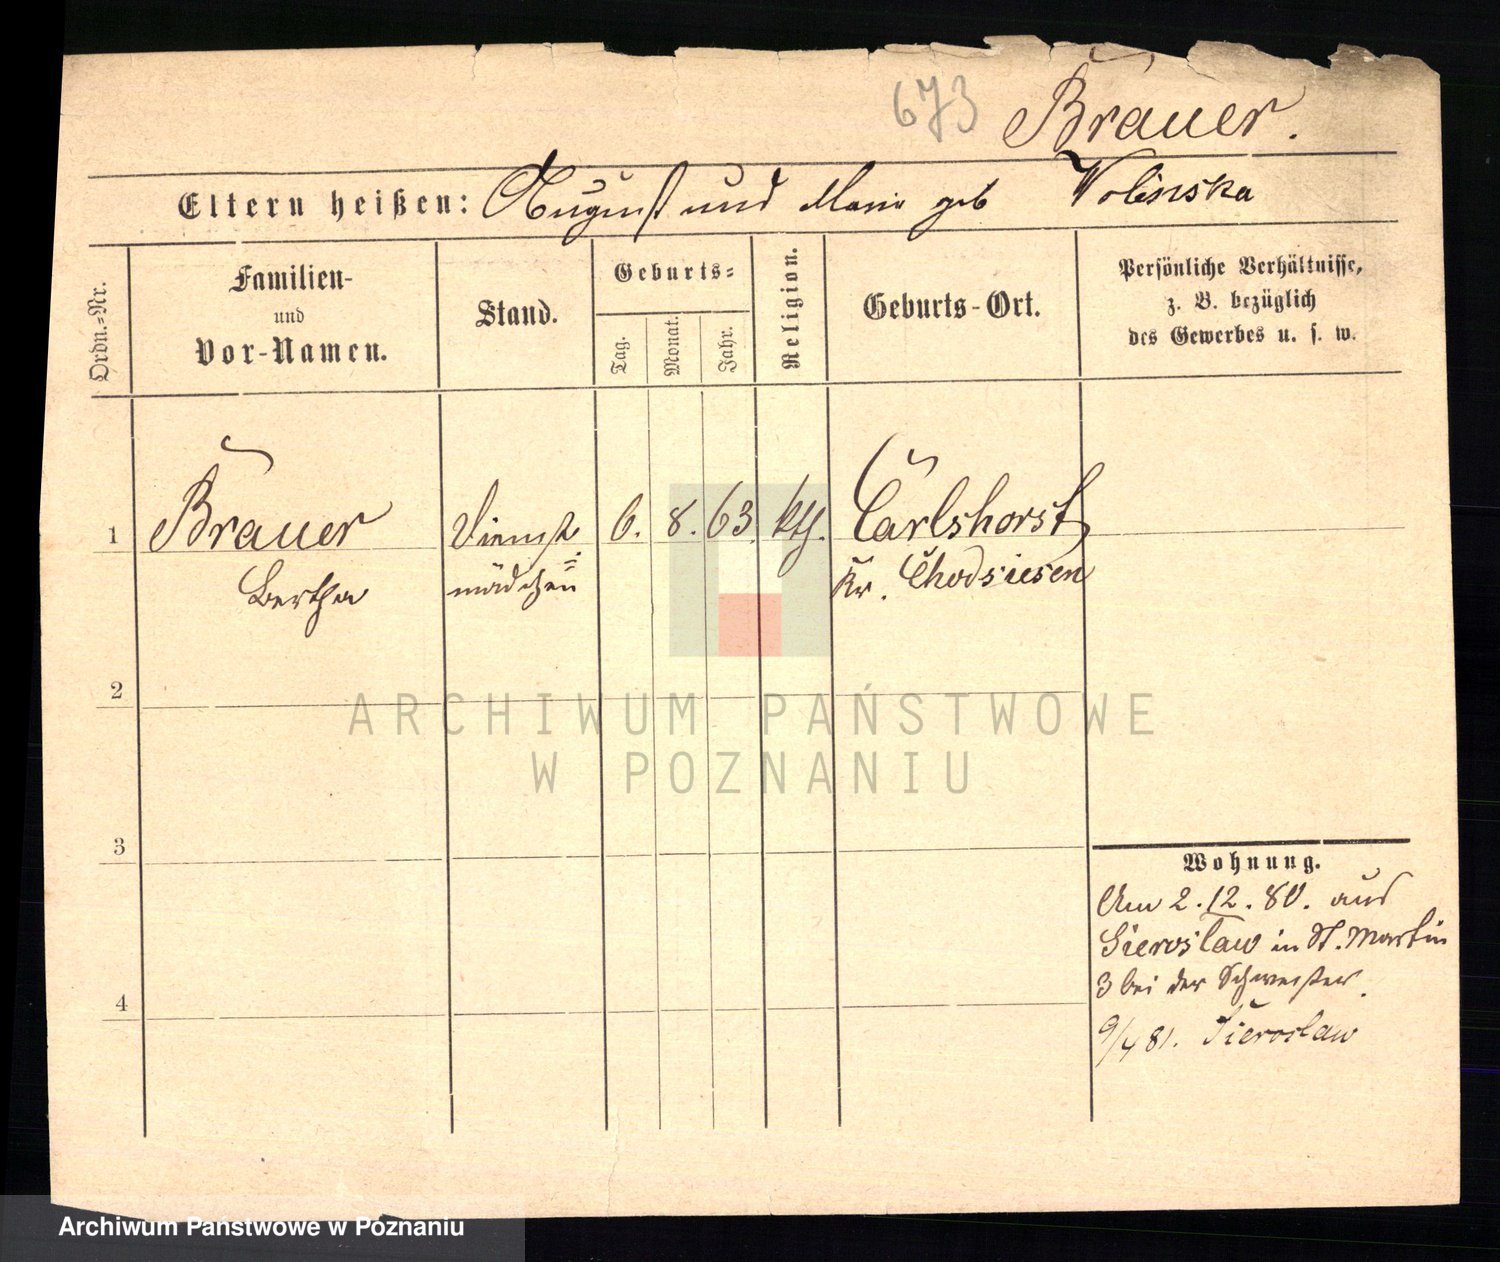 673 Brauer.
Eltern heißen: August und Marie geb Wolinska
Ordn.-Nr.
Familien-
und
Vor-Namen.
Stand.
Geburts-
Tag.
Monat.
Jahr.
Religion.
Geburts-Ort.
Persönliche Verhältnisse,
z. B. bezüglich
des Gewerbes u. s. w.
1 Brauer Dienst 6. 8. 63. kth. Carlshorst
Bertha mädchen Kr. Chodsiesen
2
3
4
Wohnung.
Am 2.12.80. aus
Sieroslaw in St. Martin
3 bei der Schwester.
9/4 81. Sieroslaw
ARCHIWUM PAŃSTWOWE
W POZNANIU
Archiwum Państwowe w Poznaniu